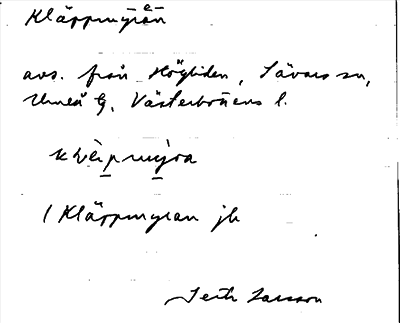 Kläppmyran
avs. från Högliden, Sävars sn,
Umeå tg, Västerbottens l.
Kläppmyran jb
Seth Larsson